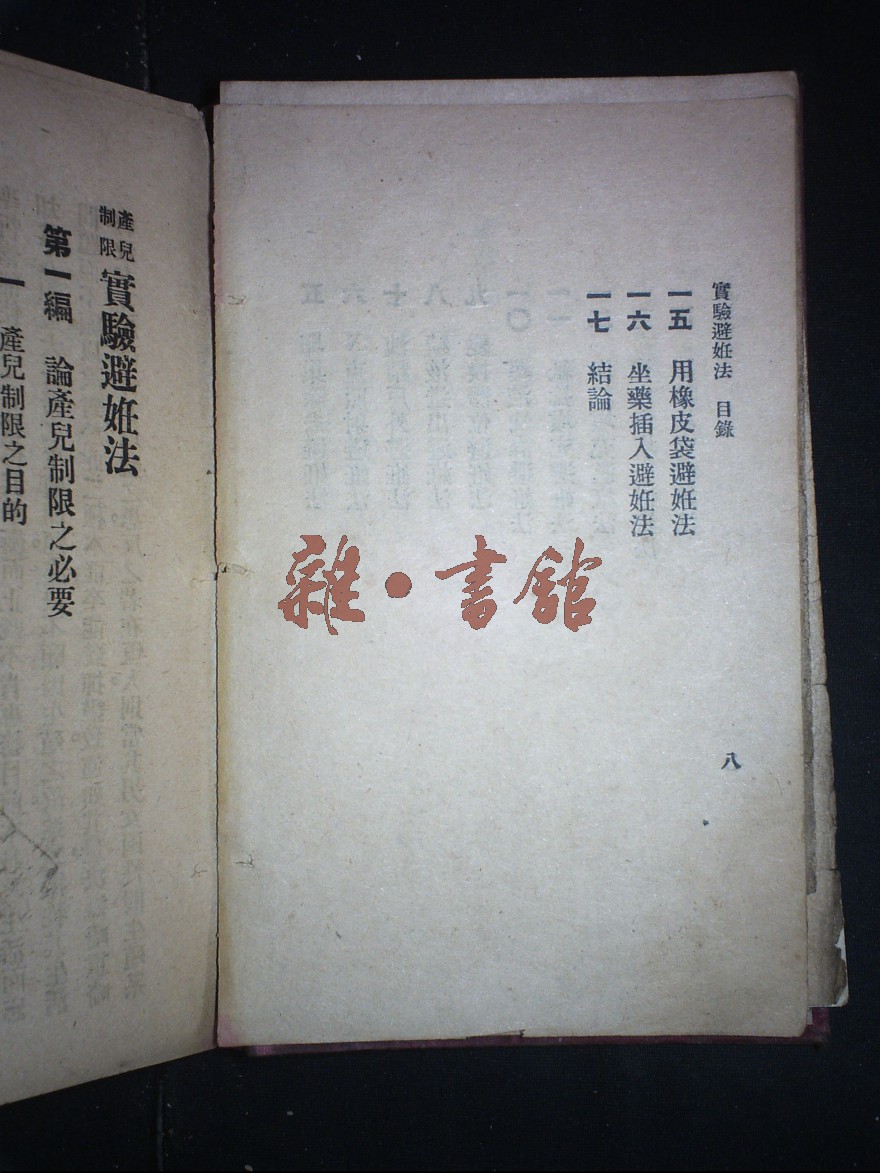 實驗避姙法　目錄
一五　用橡皮袋避姙法
一六　坐藥插入避姙法
一七　結論
八
雜・書館
產兒制限 實驗避姙法
第一編　論產兒制限之必要
一　產兒制限之目的